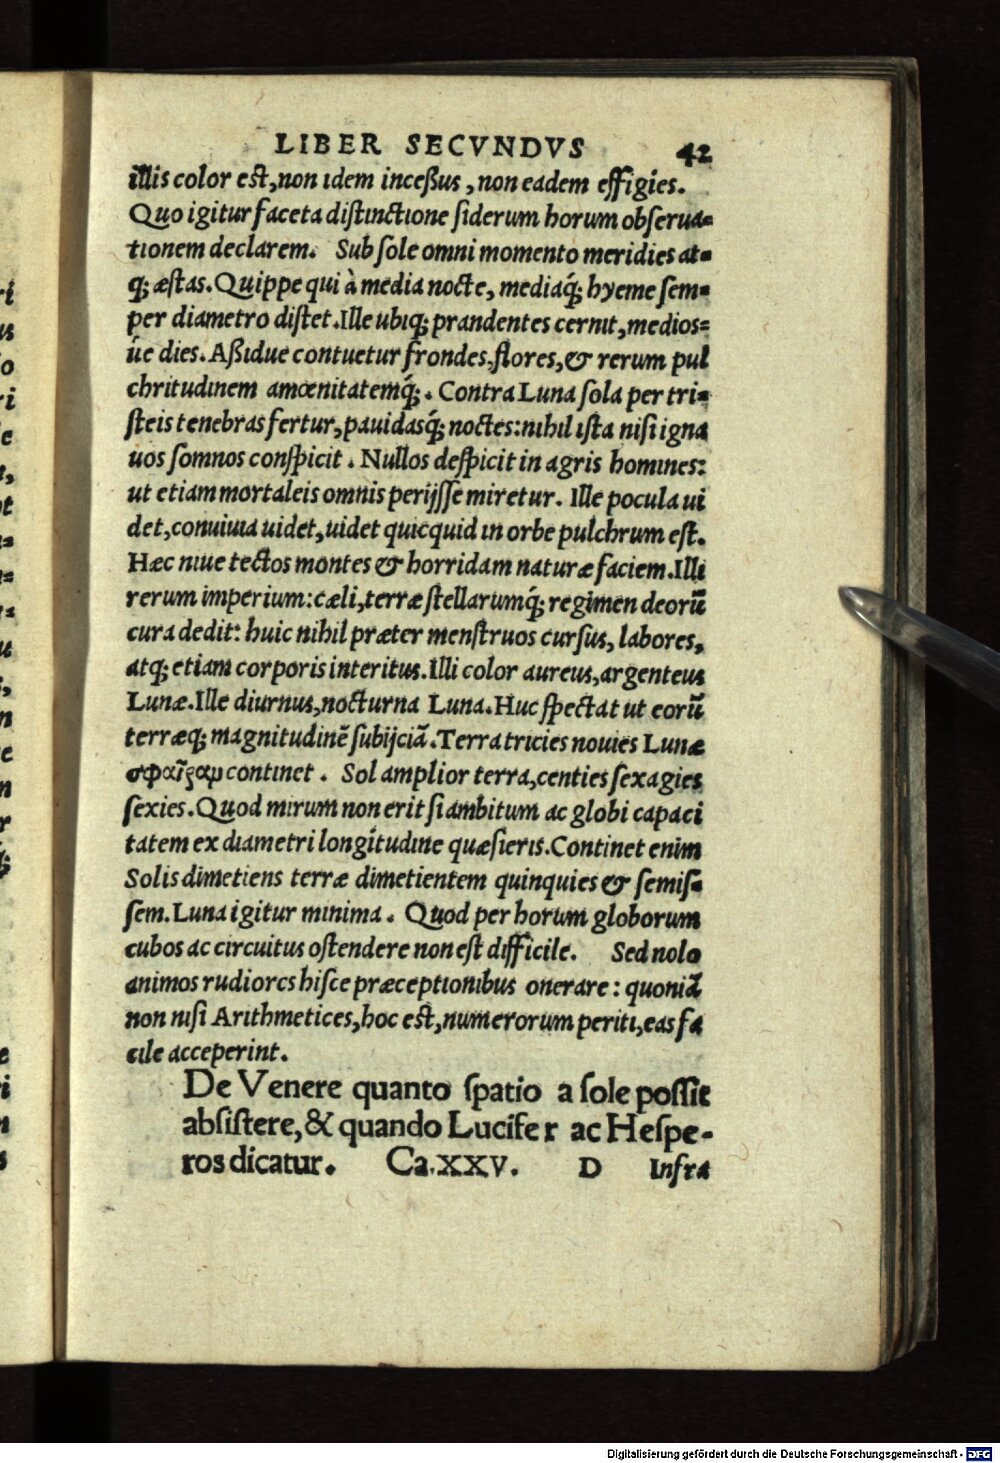 LIBER SECVNDVS 42
illis color est, non idem inceßus, non eadem effigies.
Quo igitur faceta distinctione siderum horum obserua-
tionem declarem. Sub sole omni momento meridies at-
q; æstas. Quippe qui à media nocte, mediaq́; hyeme sem-
per diametro distet. Ille ubiq; prandentes cernit, medios-
úe dies. Aßidue contuetur frondes, flores, & rerum pul
chritudinem amœnitatemq́;. Contra Luna sola per tri-
steis tenebras fertur, pauidasq́; noctes: nihil ista nisi igna
uos somnos conspicit. Nullos despicit in agris homines:
ut etiam mortaleis omnis perijsse miretur. Ille pocula ui
det, conuiuia uidet, uidet quicquid in orbe pulchrum est.
Hæc niue tectos montes & horridam naturæ faciem. Illi
rerum imperium: cæli, terræ stellarumq́; regimen deorũ
cura dedit: huic nihil præter menstruos cursus, labores,
atq; etiam corporis interitus. Illi color aureus, argenteus
Lunæ. Ille diurnus, nocturna Luna. Huc spectat ut eorũ
terræq; magnitudinẽ subijciã. Terra tricies nouies Lunæ
σφαῖραμ continet. Sol amplior terra, centies sexagies
sexies. Quod mirum non erit si ambitum ac globi capaci
tatem ex diametri longitudine quæsieris. Continet enim
Solis dimetiens terræ dimetientem quinquies & semis-
sem. Luna igitur minima. Quod per horum globorum
cubos ac circuitus ostendere non est difficile. Sed nolo
animos rudiores hisce præceptionibus onerare: quoniã
non nisi Arithmetices, hoc est, numerorum periti, eas fa
cile acceperint.
De Venere quanto spatio a sole possit
absistere, & quando Lucifer ac Hespe-
ros dicatur. Ca. XXV. D Infra
Digitalisierung gefördert durch die Deutsche Forschungsgemeinschaft - DFG